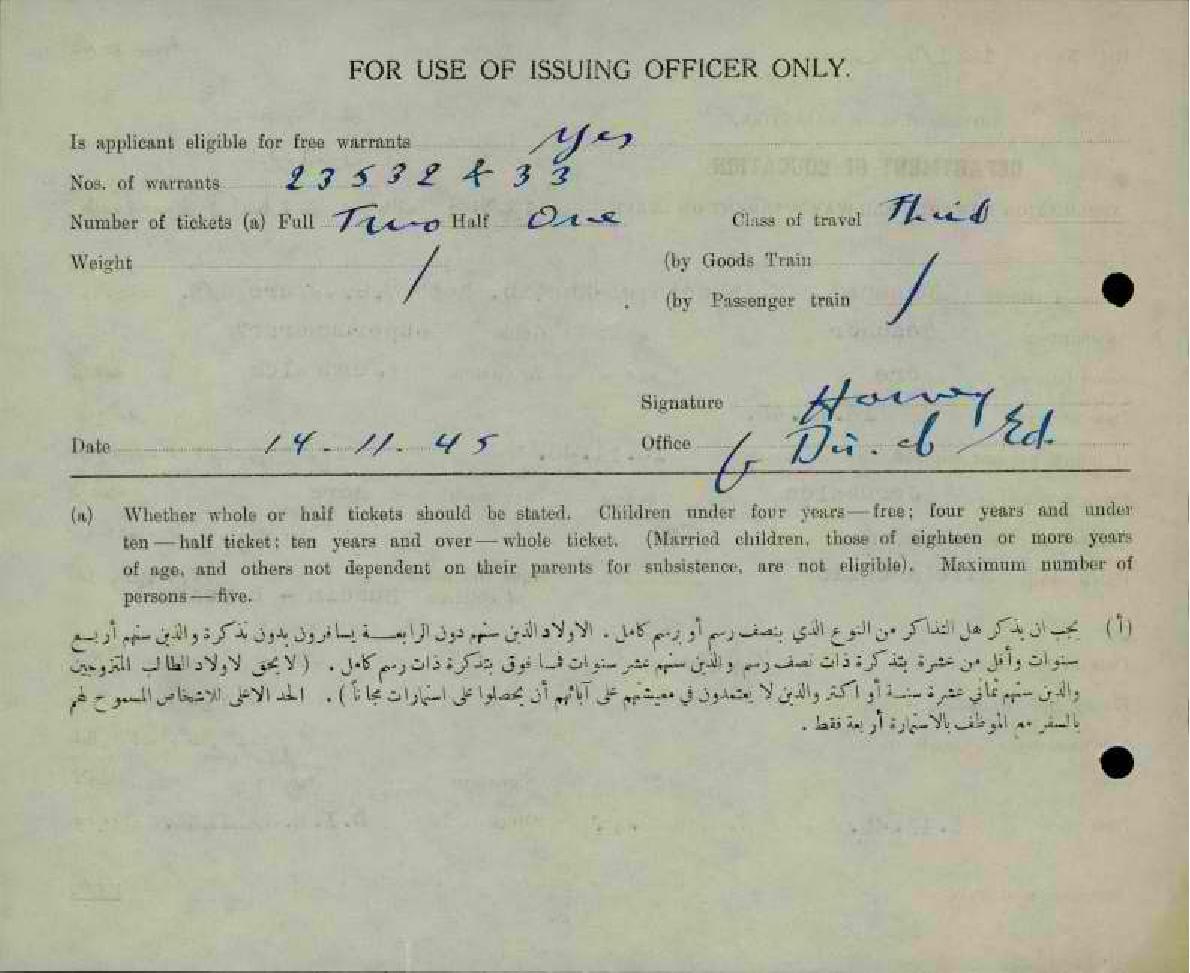 FOR USE OF ISSUING OFFICER ONLY.
Is applicant eligible for free warrants Yes
Nos. of warrants 23532 & 33
Number of tickets (a) Full Two Half One Class of travel Third
Weight / (by Goods Train /
(by Passenger train
Signature
Date 14.11.45 Office Dir. of Ed.
(a) Whether whole or half tickets should be stated. Children under four years—free; four years and under
ten—half ticket; ten years and over—whole ticket. (Married children, those of eighteen or more years
of age, and others not dependent on their parents for subsistence, are not eligible). Maximum number of
persons—five.
(أ) يجب ان يذكر هل التذاكر من النوع الذي بنصف رسم أو برسم كامل. الاولاد الذين سنهم دون الرابعة يسافرون بدون تذكرة والذين سنهم أربع
سنوات وأقل من عشرة بتذكرة ذات نصف رسم والذين سنهم عشر سنوات فما فوق بتذكرة ذات رسم كامل. (لا يحق لاولاد الطالب المتزوجين
والذين سنهم ثماني عشرة سنة أو اكثر والذين لا يعتمدون في معيشتهم على آبائهم أن يحصلوا على استمارات مجاناً). الحد الاعلى للاشخاص المسموح لهم
بالسفر مع الموظف بالاستمارة أربعة فقط.